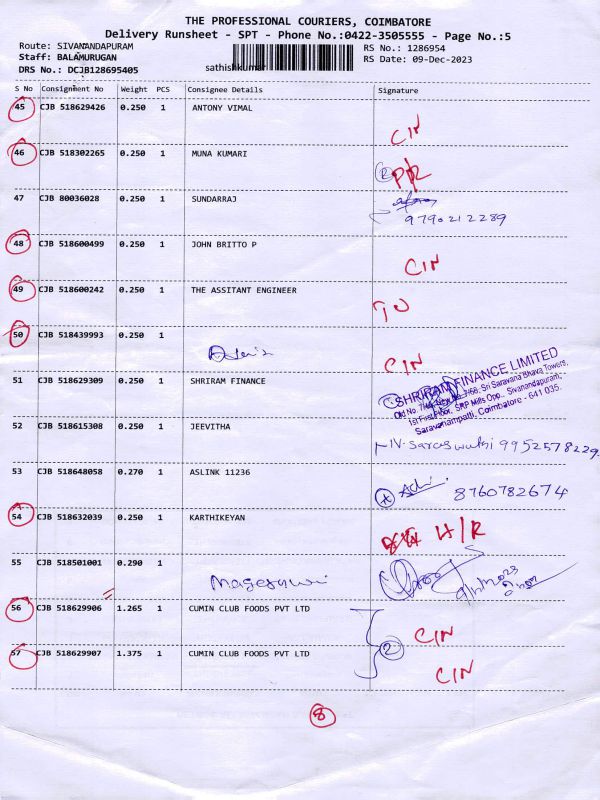 THE PROFESSIONAL COURIERS, COIMBATORE
Delivery Runsheet - SPT - Phone No.:0422-3505555 - Page No.:5
Route: SIVANANDAPURAM RS No.: 1286954
Staff: BALAMURUGAN RS Date: 09-Dec-2023
DRS No.: DCJB128695405 sathishkumar
S No Consignment No Weight PCS Consignee Details Signature
45 CJB 518629426 0.250 1 ANTONY VIMAL
CIN
46 CJB 518302265 0.250 1 MUNA KUMARI
2 P/R
47 CJB 80036028 0.250 1 SUNDARRAJ
9790212289
48 CJB 518600499 0.250 1 JOHN BRITTO P
CIN
49 CJB 518600242 0.250 1 THE ASSITANT ENGINEER
50 CJB 518439993 0.250 1
CIN
51 CJB 518629309 0.250 1 SHRIRAM FINANCE
SHRIRAM FINANCE LIMITED
Sri Saravana Bhava Towers,
1st First Floor, SRP Mills Opp., Sivanandapuram,
Saravanampatti, Coimbatore - 641 035.
52 CJB 518615308 0.250 1 JEEVITHA
N. Saraswathi 9952578229
53 CJB 518648058 0.270 1 ASLINK 11236
8760782674
54 CJB 518632039 0.250 1 KARTHIKEYAN
H/R
55 CJB 518501001 0.290 1
Mageswari
56 CJB 518629906 1.265 1 CUMIN CLUB FOODS PVT LTD
2 CIN
57 CJB 518629907 1.375 1 CUMIN CLUB FOODS PVT LTD
CIN
8